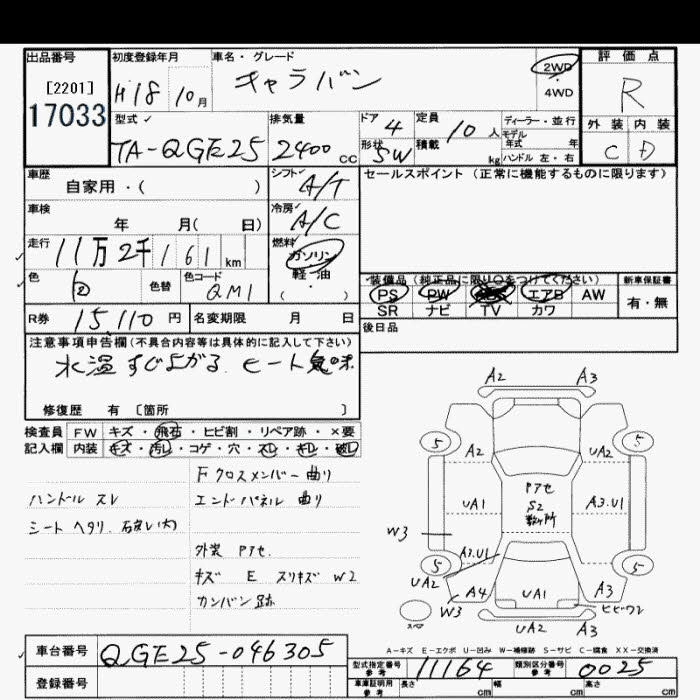 出品番号
[2201]
17033
初度登録年月
H18 10月
車名・グレード
キャラバン
2WD
4WD
評価点
R
外装 内装
C D
型式
TA-QGE25
排気量
2400 CC
ドア
4
形状
SW
定員
10 人
積載
kg
ディーラー・並行
モデル
年式 年
ハンドル 左・右
車歴
自家用・( )
シフト
A/T
車検
年 月( 日)
冷房
A/C
走行
11万2千161km
燃料
ガソリン
軽・油
( )
色
白
色替
色コード
QM1
R券 15,110 円
名変期限 月 日
セールスポイント (正常に機能するものに限ります)
装備品 (純正品に限り○をつけてください)
新車保証書
PS PW エアB AW
SR ナビ TV カワ
有・無
後日品
注意事項申告欄(不具合内容等は具体的に記入して下さい)
水温すぐ上がる ヒート気味
修復歴 有 [箇所 ]
検査員 FW キズ・飛石・ヒビ割・リペア跡・×要
記入欄 内装 キズ・汚レ・コゲ・穴・スレ・キレ・破レ
Fクロスメンバー曲り
ハンドル スレ
エンドパネル 曲り
シート ヘタリ
外装 Pアセ
キズ E スリキズ W2
カンバン跡
A2 A3
5 5
A2 UA2
Pアセ
S2
数ヶ所
UA1 A3.U1
W3
A3.U1
5 5
UA2
A4 UA1 A3
W3
スペア
ヒビワレ
UA2 A3
A-キズ E-エクボ U-凹み W-補修跡 S-サビ C-腐食 XX-交換済
車台番号 QGE25-046305
登録番号
型式指定番号
参考
11164
類別区分番号
参考
0025
車庫証明用
参考
長さ cm 幅 cm 高さ cm